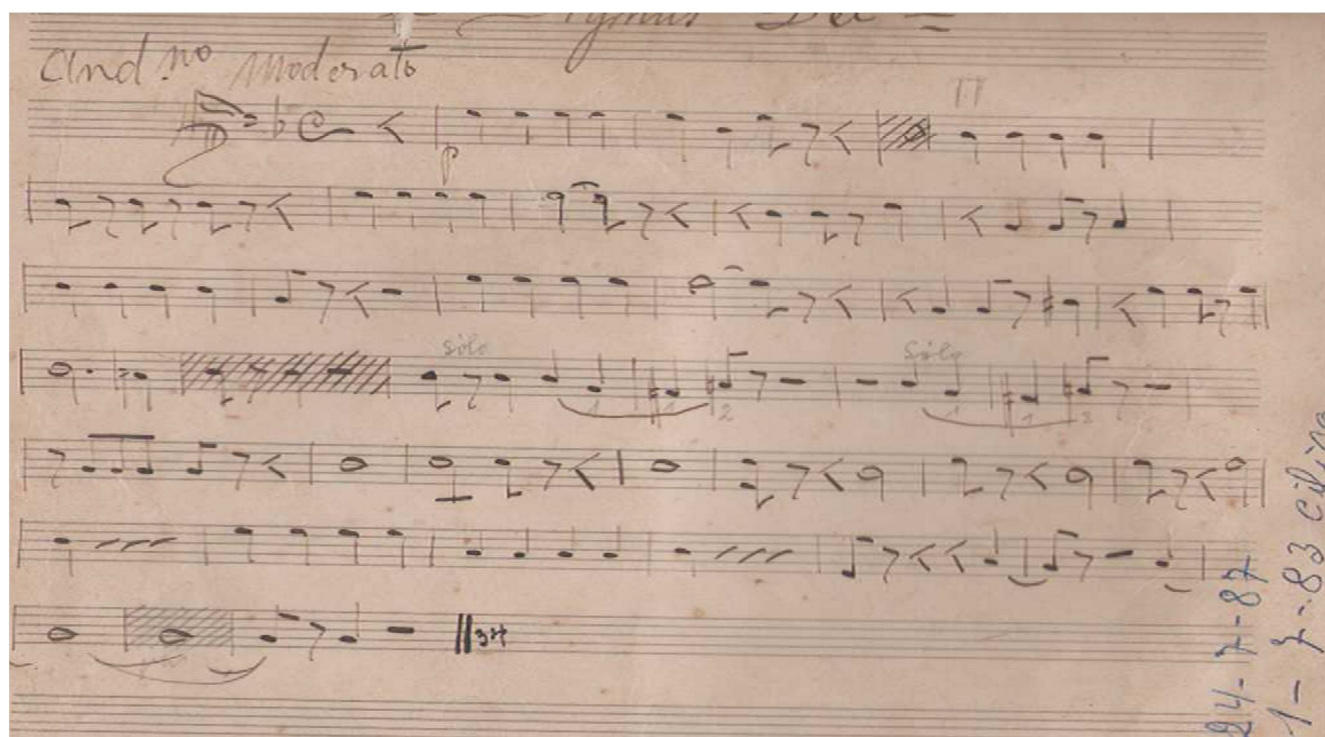 Agnus Dei =
And.no Moderato
p
Solo
Solo
1 1 2
1 1 2
34
24-7-87
1-7-83